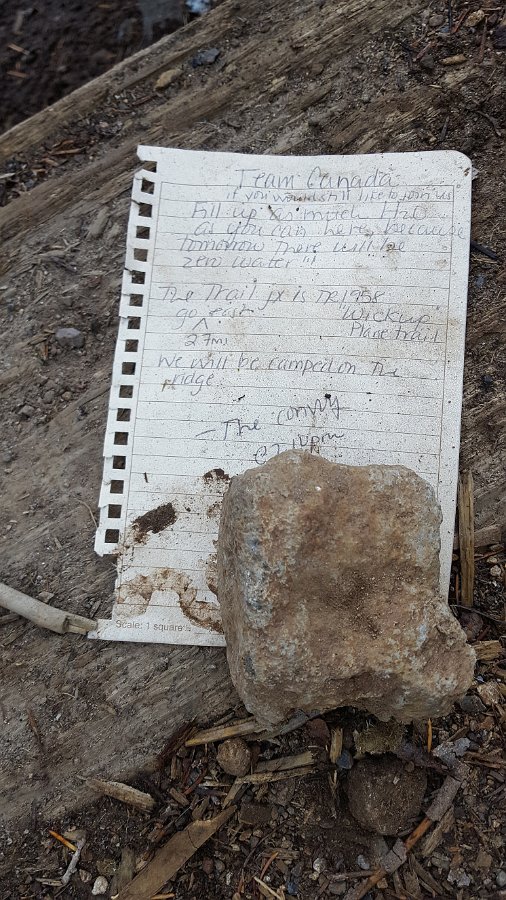 Team Canada
if you would still like to join us
Fill up as much H2O
as you can here, because
tomorrow there will be
zero water!!!
The Trail jx is TR1958
go east "Wickup
2.7mi Plane trail
We will be camped on the
ridge.
- The convoy
@ 7:10pm
Scale: 1 square =